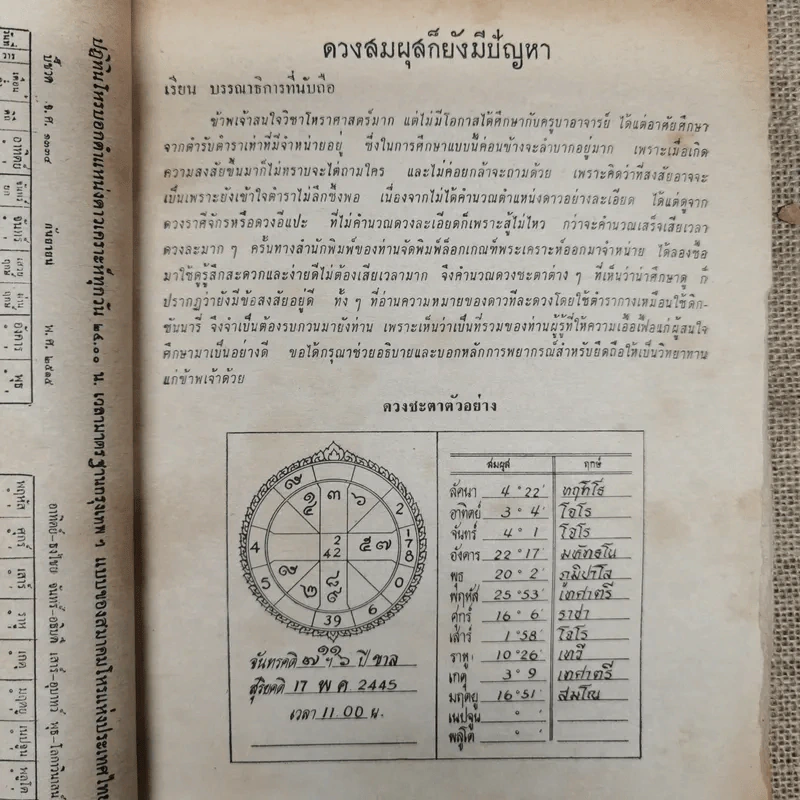 ดวงสมผุสก็ยังมีปัญหา
เรียน บรรณาธิการที่นับถือ
ข้าพเจ้าสนใจวิชาโหราศาสตร์มาก แต่ไม่มีโอกาสได้ศึกษากับครูบาอาจารย์ ได้แต่อาศัยศึกษา
จากตำรับตำราเท่าที่มีจำหน่ายอยู่ ซึ่งในการศึกษาแบบนี้ค่อนข้างจะลำบากอยู่มาก เพราะเมื่อเกิด
ความสงสัยขึ้นมาก็ไม่ทราบจะไต่ถามใคร และไม่ค่อยกล้าจะถามด้วย เพราะคิดว่าที่สงสัยอาจจะ
เป็นเพราะยังเข้าใจตำราไม่ลึกซึ้งพอ เนื่องจากไม่ได้คำนวณตำแหน่งดาวอย่างละเอียด ได้แต่ดูจาก
ดวงราศีจักรหรือดวงอีแปะ ที่ไม่คำนวณดวงละเอียดก็เพราะสู้ไม่ไหว กว่าจะคำนวณเสร็จเสียเวลา
ดวงละมาก ๆ ครั้นทางสำนักพิมพ์ของท่านจัดพิมพ์ล็อกเกณฑ์พระเคราะห์ออกมาจำหน่าย ได้ลองซื้อ
มาใช้ดูรู้สึกสะดวกและง่ายดีไม่ต้องเสียเวลามาก จึงคำนวณดวงชะตาต่าง ๆ ที่เห็นว่าน่าศึกษาดู ก็
ปรากฏว่ายังมีข้อสงสัยอยู่ดี ทั้ง ๆ ที่อ่านความหมายของดาวทีละดวงโดยใช้ตำรากางเหมือนใช้ดิก-
ชันนารี่ จึงจำเป็นต้องรบกวนมายังท่าน เพราะเห็นว่าเป็นที่รวมของท่านผู้รู้ที่ให้ความเอื้อเฟื้อแก่ผู้สนใจ
ศึกษามาเป็นอย่างดี ขอได้กรุณาช่วยอธิบายและบอกหลักการพยากรณ์สำหรับยึดถือให้เป็นวิทยาทาน
แก่ข้าพเจ้าด้วย
ดวงชะตาตัวอย่าง
๓
๖
2
4
2
42
๕๗
1
7
8
5
0
๒
๘
39
6
จันทรคติ ปี ขาล
สุริยคติ 17 พ ค 2445
เวลา 11.00 น.
สมผุส ฤกษ์
ลัคนา 4 ° 22' ทฤทฺโธ
อาทิตย์ 3 ° 4' โจโร
จันทร์ 4 ° 1 โจโร
อังคาร 22 ° 17' มหัทธโน
พุธ 20 ° 2' ภูมิปาโล
พฤหัส 25 ° 53' เทศาตรี
ศุกร์ 16 ° 6' ราชา
เสาร์ 1 ° 58' โจโร
ราหู 10 ° 26' เทวี
เกตุ 3 ° 9 เทศาตรี
มฤตยู 16 ° 51' สมโณ
เนปจูน ° '
พลูโต ° '
ปฏิทินโหรบอกตำแหน่งดาวเคราะห์ทุกวัน ๒๔.๐๐ น. เวลามาตรฐานกรุงเทพ ฯ แบบของสมาคมโหรแห่งประเทศไทย
กันยายน
อาทิตย์
จันทร์
อังคาร
พุธ
พฤหัส
ศุกร์
เสาร์
ราหู
เกตุ
มฤตยู
เนปจูน
พลูโต